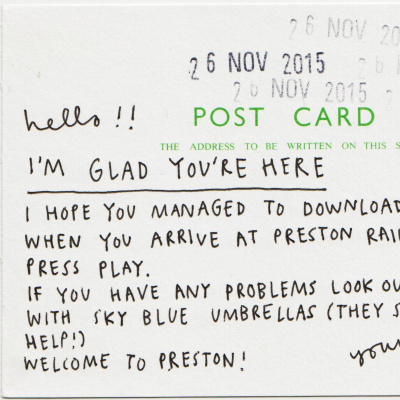 26 NOV 20
26 NOV 2015
26 NOV 2015
hello!!
POST CARD
THE ADDRESS TO BE WRITTEN ON THIS S
I'M GLAD YOU'RE HERE
I HOPE YOU MANAGED TO DOWNLOAD
WHEN YOU ARRIVE AT PRESTON RAI
PRESS PLAY.
IF YOU HAVE ANY PROBLEMS LOOK OU
WITH SKY BLUE UMBRELLAS (THEY S
HELP!)
WELCOME TO PRESTON!
your